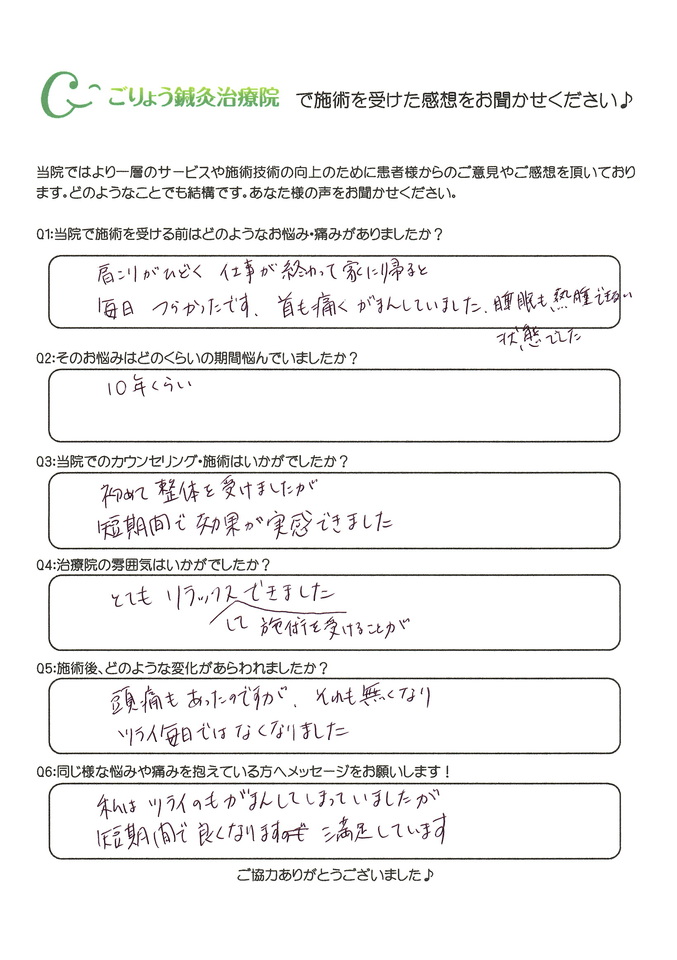 ごりょう鍼灸治療院 で施術を受けた感想をお聞かせください♪
当院ではより一層のサービスや施術技術の向上のために患者様からのご意見やご感想を頂いており
ます。どのようなことでも結構です。あなた様の声をお聞かせください。
Q1:当院で施術を受ける前はどのようなお悩み・痛みがありましたか？
肩こりがひどく 仕事が終わって家に帰ると
毎日 つらかったです、首も痛くがまんしていました、睡眠も熟睡できない
状態でした
Q2:そのお悩みはどのくらいの期間悩んでいましたか？
10年くらい
Q3:当院でのカウンセリング・施術はいかがでしたか？
初めて整体を受けましたが
短期間で効果が実感できました
Q4:治療院の雰囲気はいかがでしたか？
とても リラックスできました
して 施術を受けることが
Q5:施術後、どのような変化があらわれましたか？
頭痛もあったのですが、それも無くなり
ツライ毎日ではなくなりました
Q6:同じ様な悩みや痛みを抱えている方へメッセージをお願いします！
私はツライのもがまんしてしまっていましたが
短期間で良くなります 満足しています
ご協力ありがとうございました♪